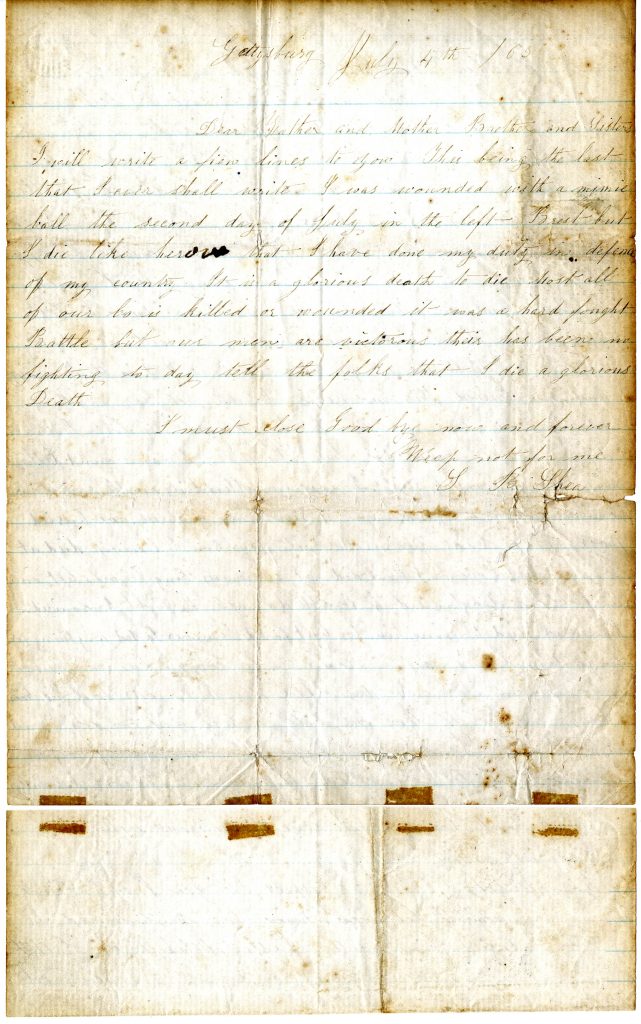 Gettysburg July 4th /63
Dear Father and Mother Brother and Sister
I will write a fiew lines to yow This being the last
that I ever shall write I was wounded with a minie
ball the second day of July in the left Brest but
I die like heroe that I have done my duty in defence
of my country It is a glorious death to die Most all
of our bo is killed or wounded it was a hard fought
Battle but our men are victorous their has been no
fighting to day tell the folks that I die a glorious
Death
I must close Good bye now and forever
Weep not for me
Shea